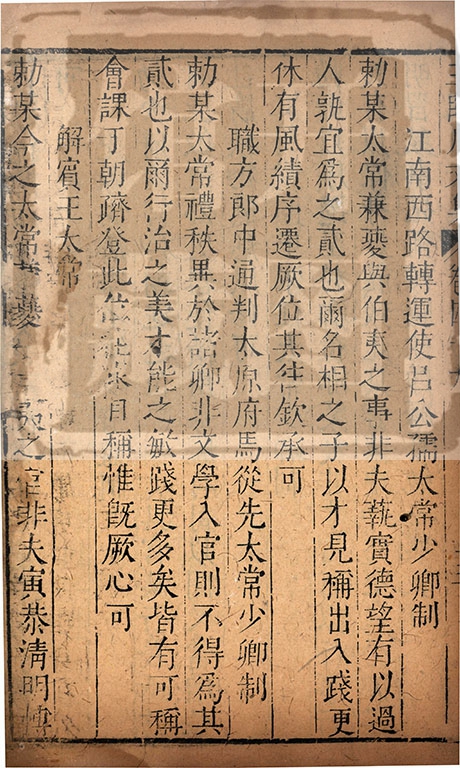 江南西路轉運使吕公孺太常少卿制
勑某太常兼夔與伯夷之事非夫蓺實德望有以過
人孰宜爲之貳也爾名相之子以才見稱出入踐更
休有風績序遷厥位其往欽承可
職方郎中通判太原府馬從先太常少卿制
勑某太常禮秩異於諸卿非文學入官則不得爲其
貳也以爾行治之美才能之敏踐更多矣皆有可稱
會課于朝躋登此 自稱惟旣厥心可
解賓王太常
勑某今之太常 夔 之官非夫寅恭清明博